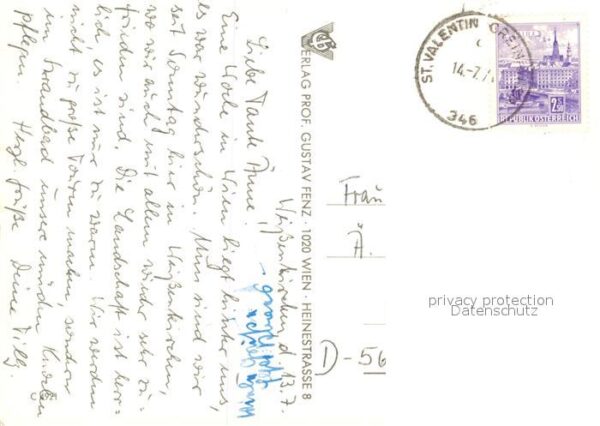 Weißenkirchen, d. 13.7.
Liebe Tante Änne!
Eine Woche in Wien liegt hinter uns,
es war wunderschön. Nun sind wir
seit Sonntag hier in Weißenkirchen,
wo wir auch mit allem wieder sehr zu-
frieden sind. Die Landschaft ist herr-
lich, es ist nur zu warm. Wir werden
nicht zu große Touren machen, sondern
im Strandbad unsere müden Knochen
pflegen. Herzl. Grüße Deine
VERLAG PROF. GUSTAV FENZ · 1020 WIEN · HEINESTRASSE 8
ST. VALENTIN
14.-7.
346
2.50
REPUBLIK ÖSTERREICH
Frau
Ä.
D-56
privacy protection
Datenschutz